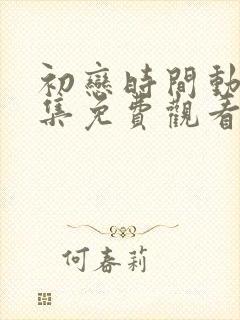 初戀時間動
集免費觀看
何春莉